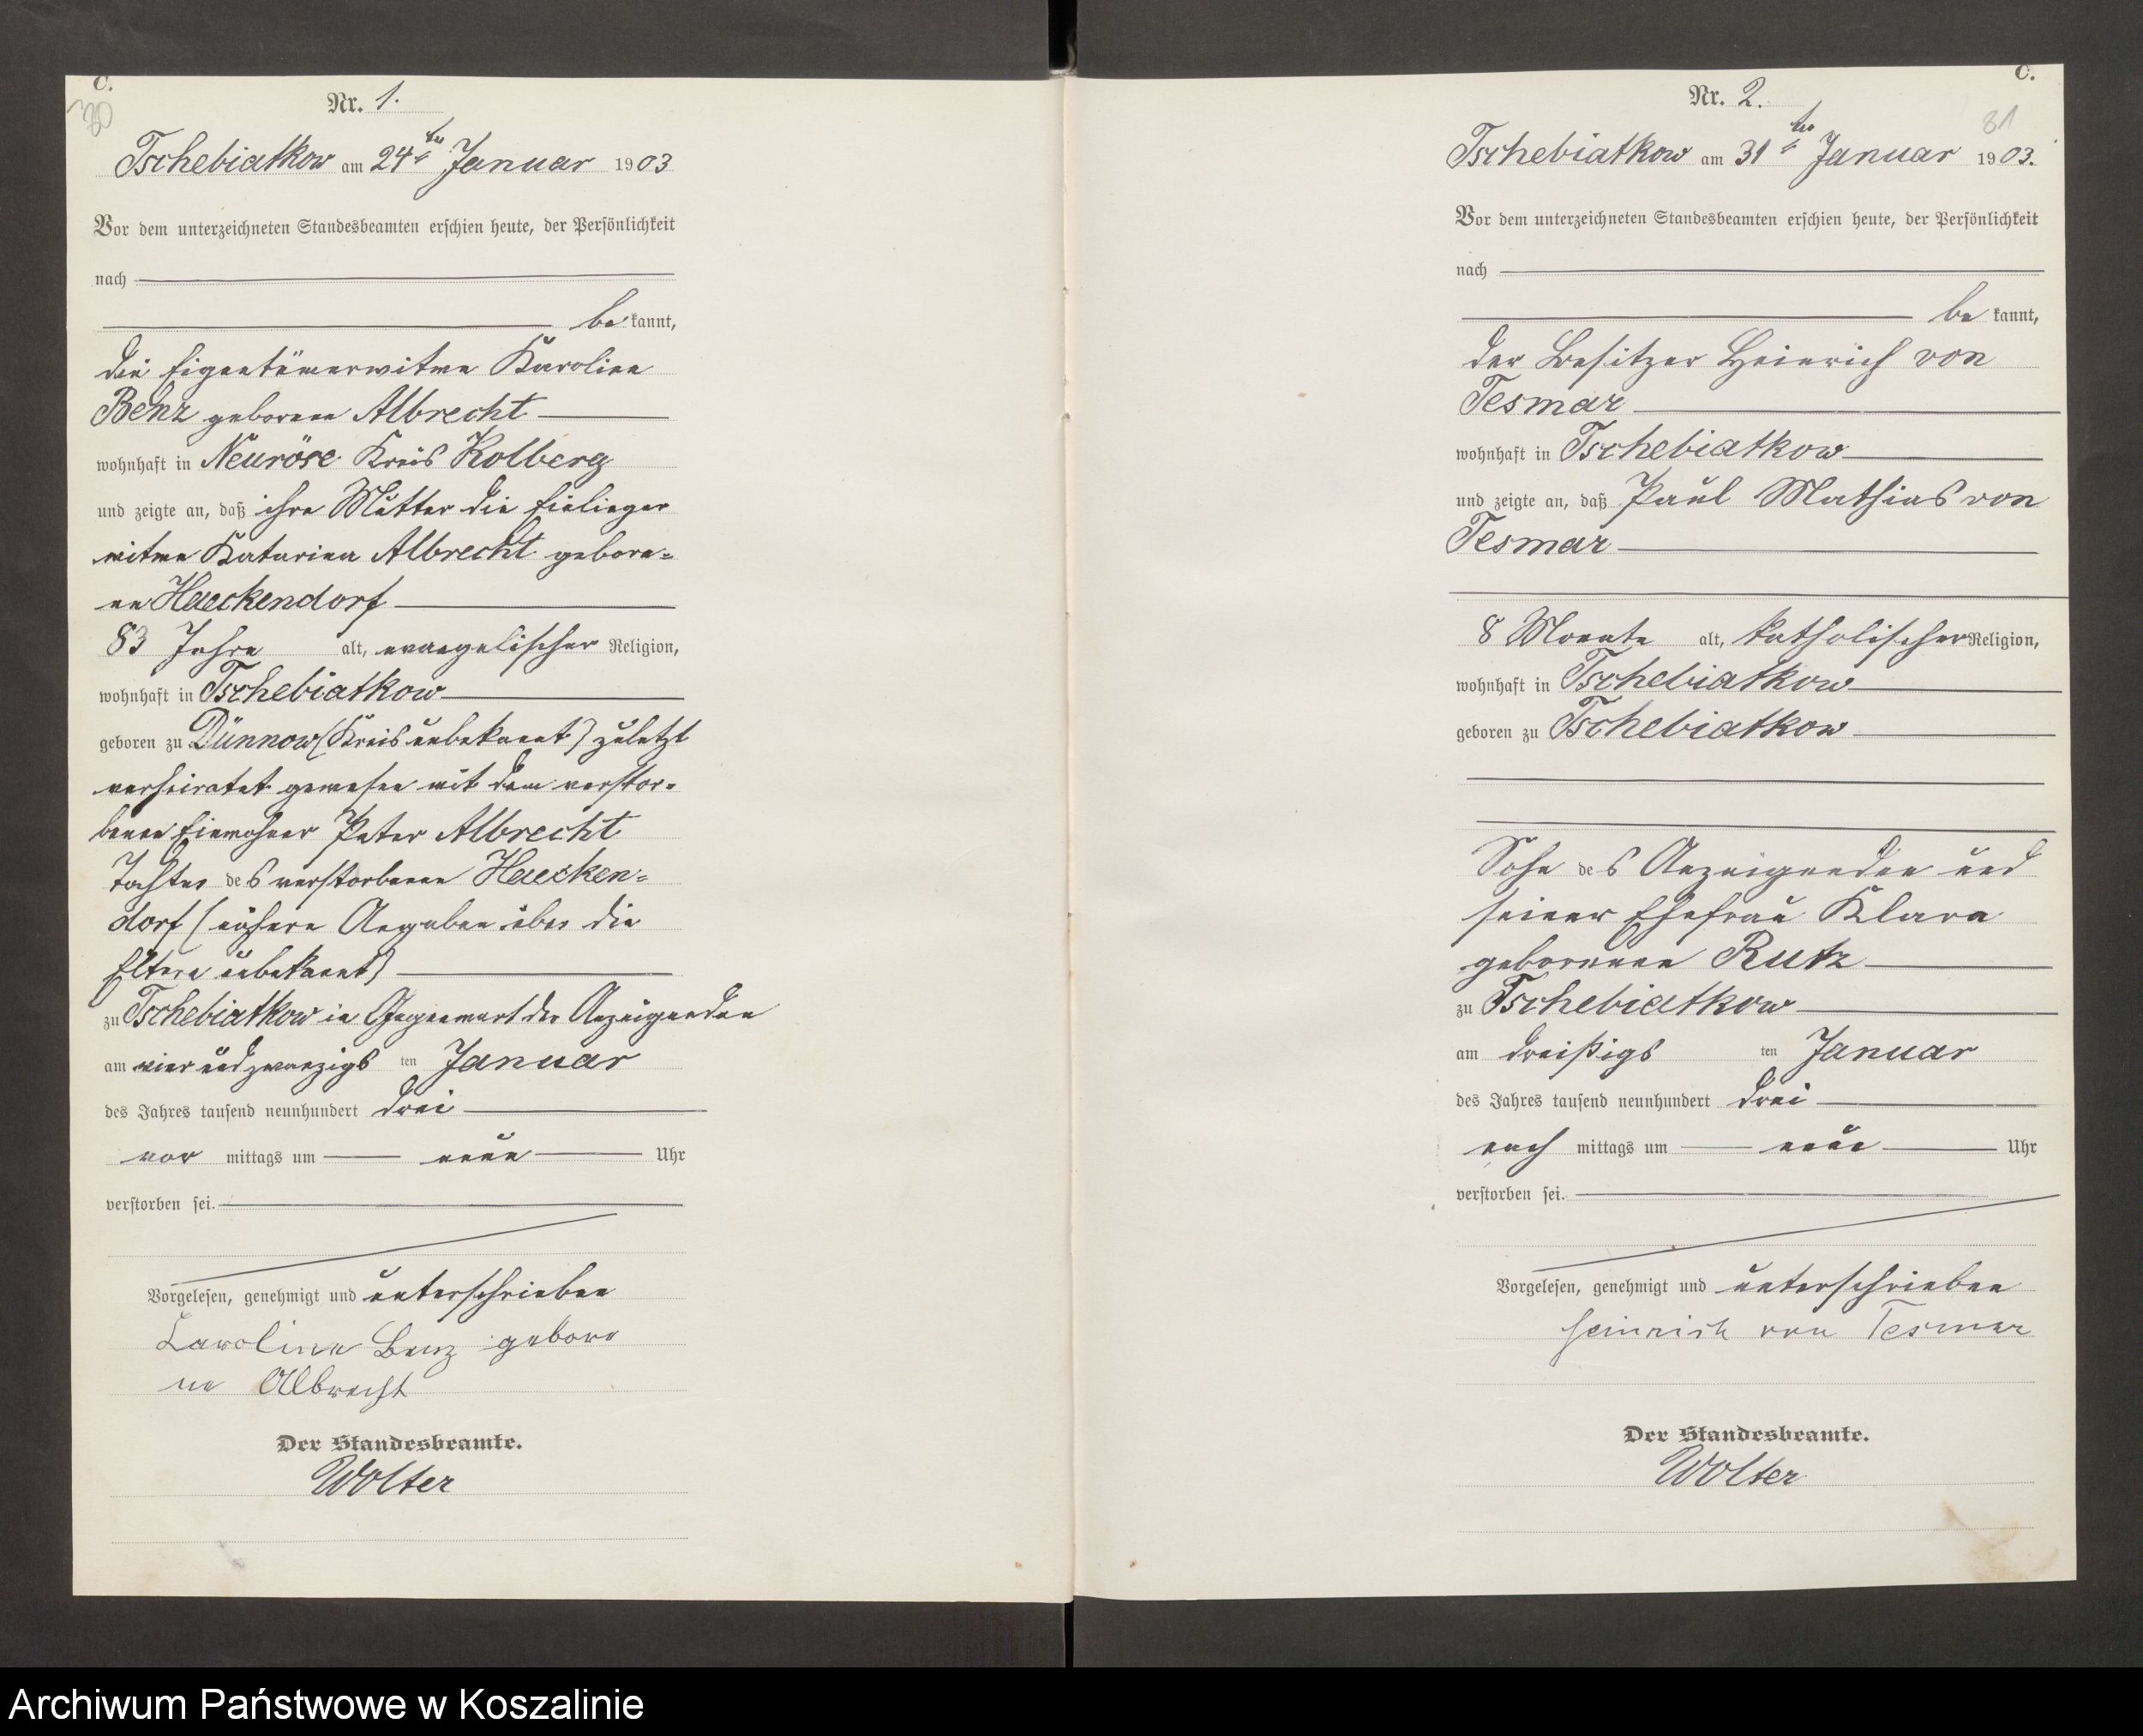 C.
Nr. 1.
80
Tschebiatkow am 24ten Januar 1903
Vor dem unterzeichneten Standesbeamten erschien heute, der Persönlichkeit
nach
be kannt,
die Eigentümerwitwe Karoline
Benz geborene Albrecht
wohnhaft in Neuröse Kreis Kolberg
und zeigte an, daß ihre Mutter die Einlieger
witwe Katarina Albrecht gebore-
ne Haeckendorf
83 Jahre alt, evangelischer Religion,
wohnhaft in Tschebiatkow
geboren zu Dünnow (Kreis unbekannt) zuletzt
verheiratet gewesen mit dem verstor-
benen Einwohner Peter Albrecht
Tochter des verstorbenen Haecken-
dorf (nähere Angaben über die
Eltern unbekannt)
zu Tschebiatkow in Gegenwart der Anzeigenden
am vier und zwanzigs ten Januar
des Jahres tausend neunhundert drei
vor mittags um neun Uhr
verstorben sei.
Vorgelesen, genehmigt und unterschrieben
Karoline Benz gebore
ne Albrecht
Der Standesbeamte.
Wolter
C.
Nr. 2.
81
Tschebiatkow am 31ten Januar 1903.
Vor dem unterzeichneten Standesbeamten erschien heute, der Persönlichkeit
nach
be kannt,
der Besitzer Heinrich von
Tesmar
wohnhaft in Tschebiatkow
und zeigte an, daß Paul Mathias von
Tesmar
8 Monate alt, katholischer Religion,
wohnhaft in Tschebiatkow
geboren zu Tschebiatkow
Sohn des Anzeigenden und
seiner Ehefrau Klara
geborenen Rutz
zu Tschebiatkow
am dreißigs ten Januar
des Jahres tausend neunhundert drei
nach mittags um neun Uhr
verstorben sei.
Vorgelesen, genehmigt und unterschrieben
Heinrich von Tesmar
Der Standesbeamte.
Wolter
Archiwum Państwowe w Koszalinie